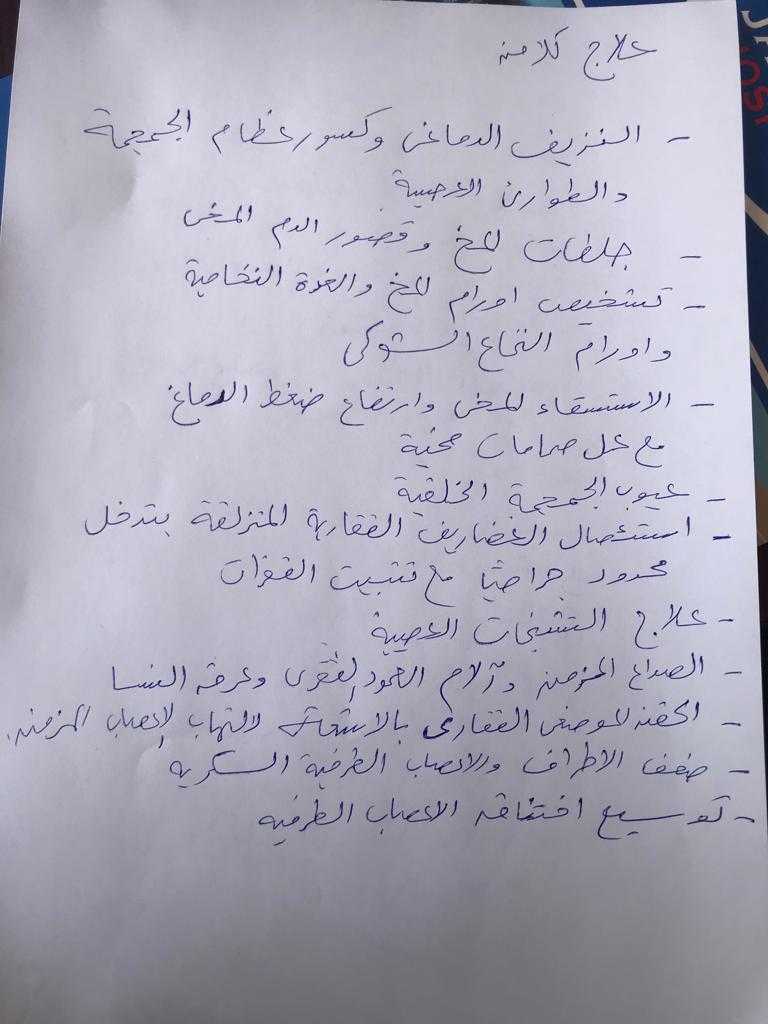 علاج كلا من
- النزيف الدماغى وكسور عظام الجمجمة
والطوارئ العصبية
- جلطات المخ وقصور الدم المخى
- تشخيص اورام المخ والغدة النخامية
واورام النخاع الشوكى
- الاستسقاء المخى وارتفاع ضغط الدماغ
مع عمل صمامات مخية
- عيوب الجمجمة الخلقية
- استئصال الغضاريف الفقارية المنزلقة بتدخل
محدود جراحيا مع تثبيت الفقرات
- علاج التشنجات العصبية
- الصداع المزمن وآلام العمود الفقرى وعرق النسا
- الحقن الموضعى الفقارى بالاشعة لالتهاب الاعصاب المزمنه.
- ضعف الاطراف والاعصاب الطرفية السكرية
- توسيع اختناق الاعصاب الطرفيه